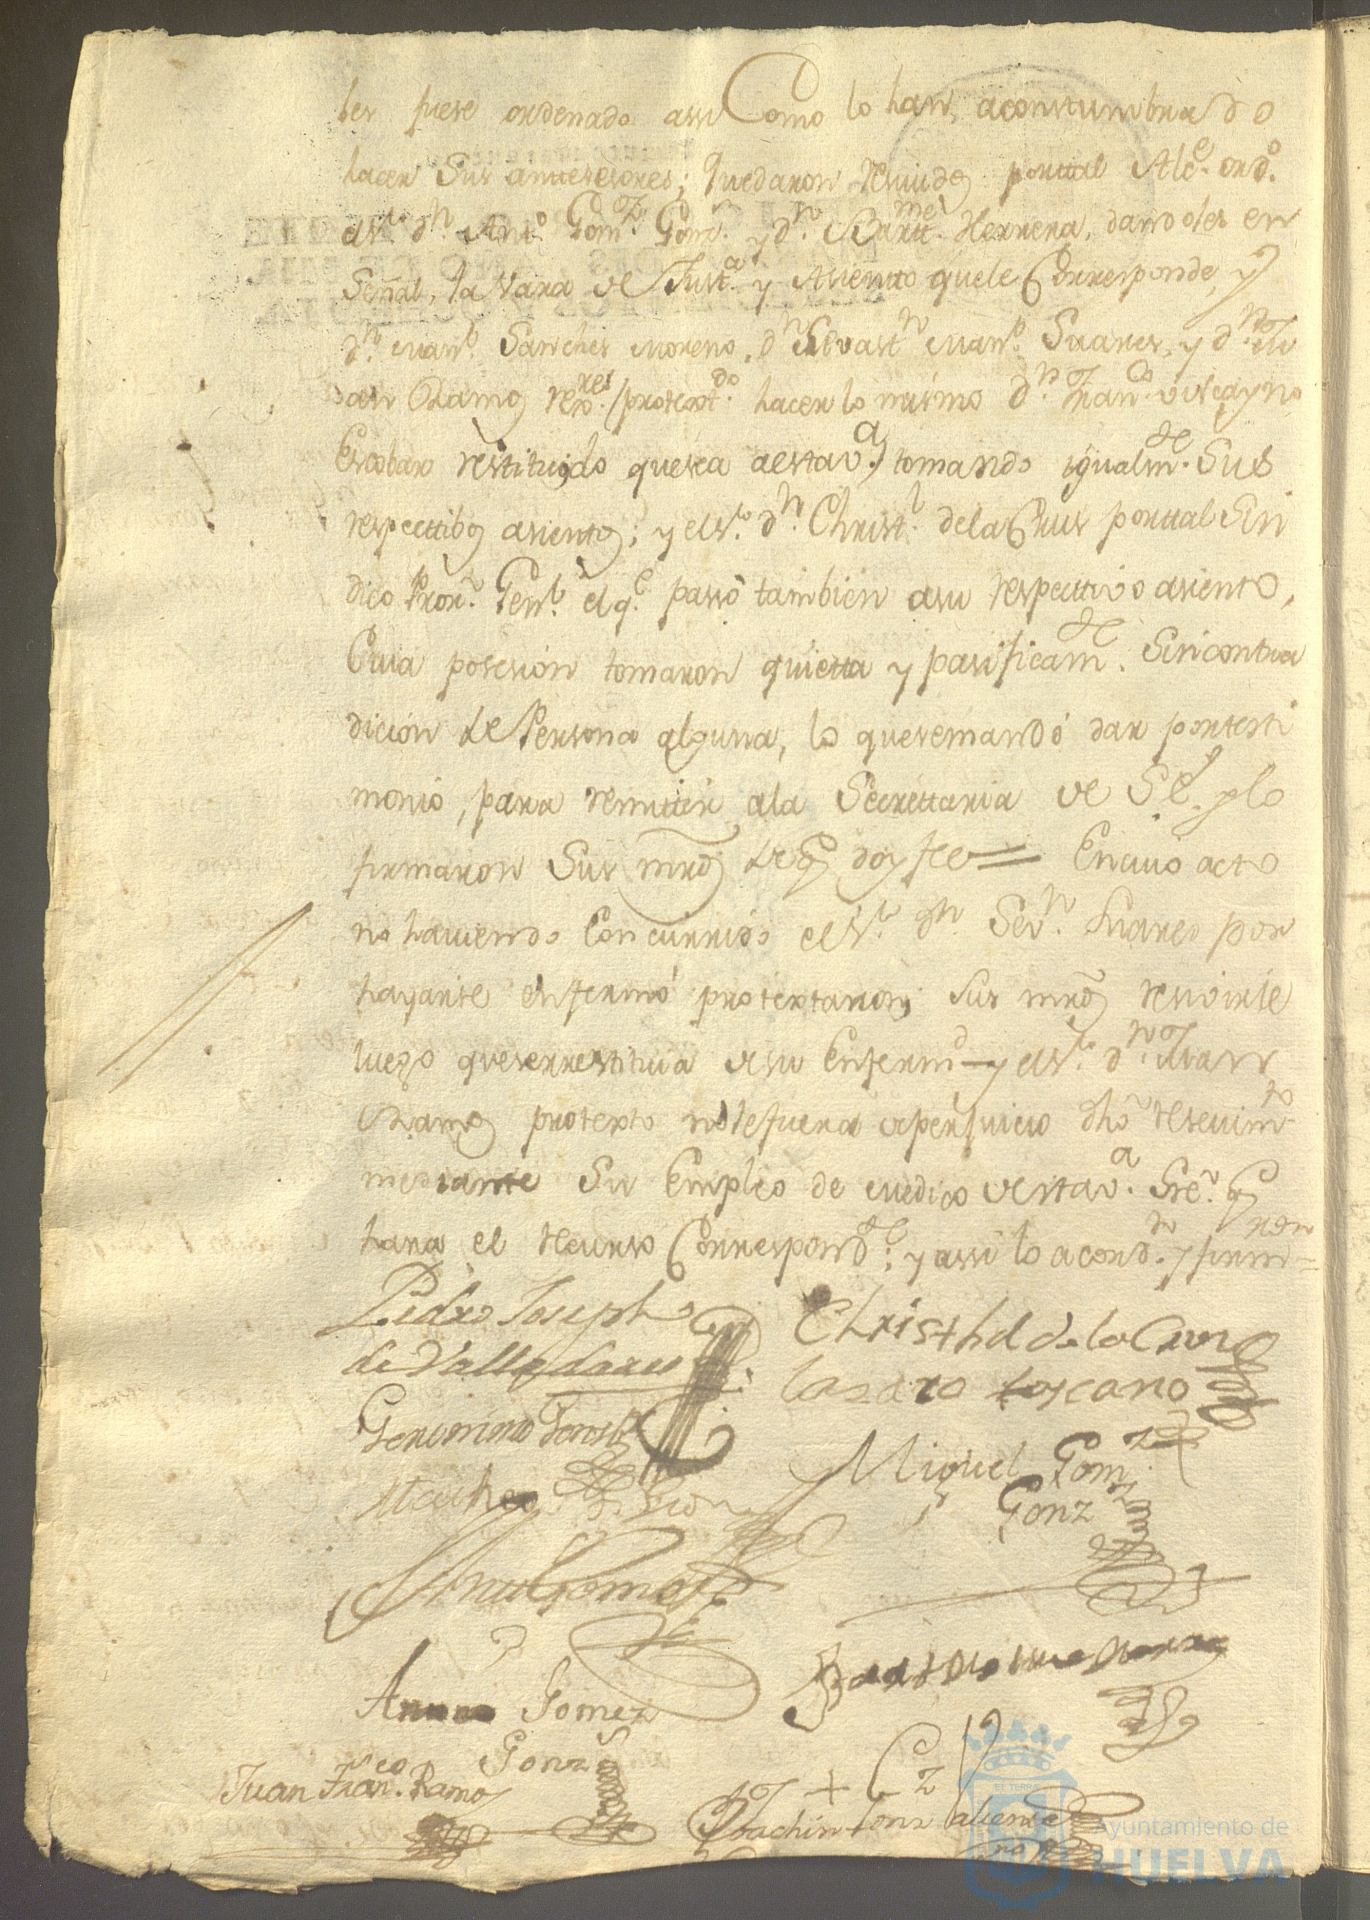 les fuese ordenado assi Como lo han acostumbrado
hacer Sus antesesores; Quedaron resividos por tal Alc.e ord.o
D.n Ant.o Gom.z Gonz.z y d.n Bart.me Herrera, dandoles en
Señal, la Vara de Just.a y Asiento que le Corresponde, y
d.n Man.l Sanches Moreno, d.n Sevast.n Man.l Suares, y d.n
Ramos rex.res protext.do hacer lo mismo d.n Fran.co Viscayno
Escobar restituido que sea a esta v.a tomando igualm.te Sus
respectibos asientos; y el s.r d.n Christ.l de la Crus por tal Sin
dico Pror.r Gen.l el q.e passo tambien a su respectivo asiento,
Cuia posesion tomaron quietta y pasificam.te Sin contra
dicion de Persona alguna, lo que se mandó dar por testi
monio, para remitir a la Secrettaria de S.E. y lo
firmaron Sus mrds de q doy fee = En cuio acto
no haviendo Concurrido el S.r d.n Sev.n Suares por
hayarse enfermo protextaron Sus mrds resivirle
luego que se rrestituia de su Enfermd y el S.r d.n Juan
Ramos protexto no le fuera de perjuicio dho resevim.to
mediante Su Empleo de Medico de esta v.a Sre. q
hara el recurso Correspond.te; y assi lo acord.n y firm.ron =
Pedro Joseph
de Valladares
Christl de la Crus
Lazaro toscano
Geronimo
Miguel Gom.z
Gonz
Matheo
Gomes
Bartolome Herrera
Anto Gomez
Gonz
Juan Fran.co Ramos
Joachin
EL TERRA
Ayuntamiento de
HUELVA